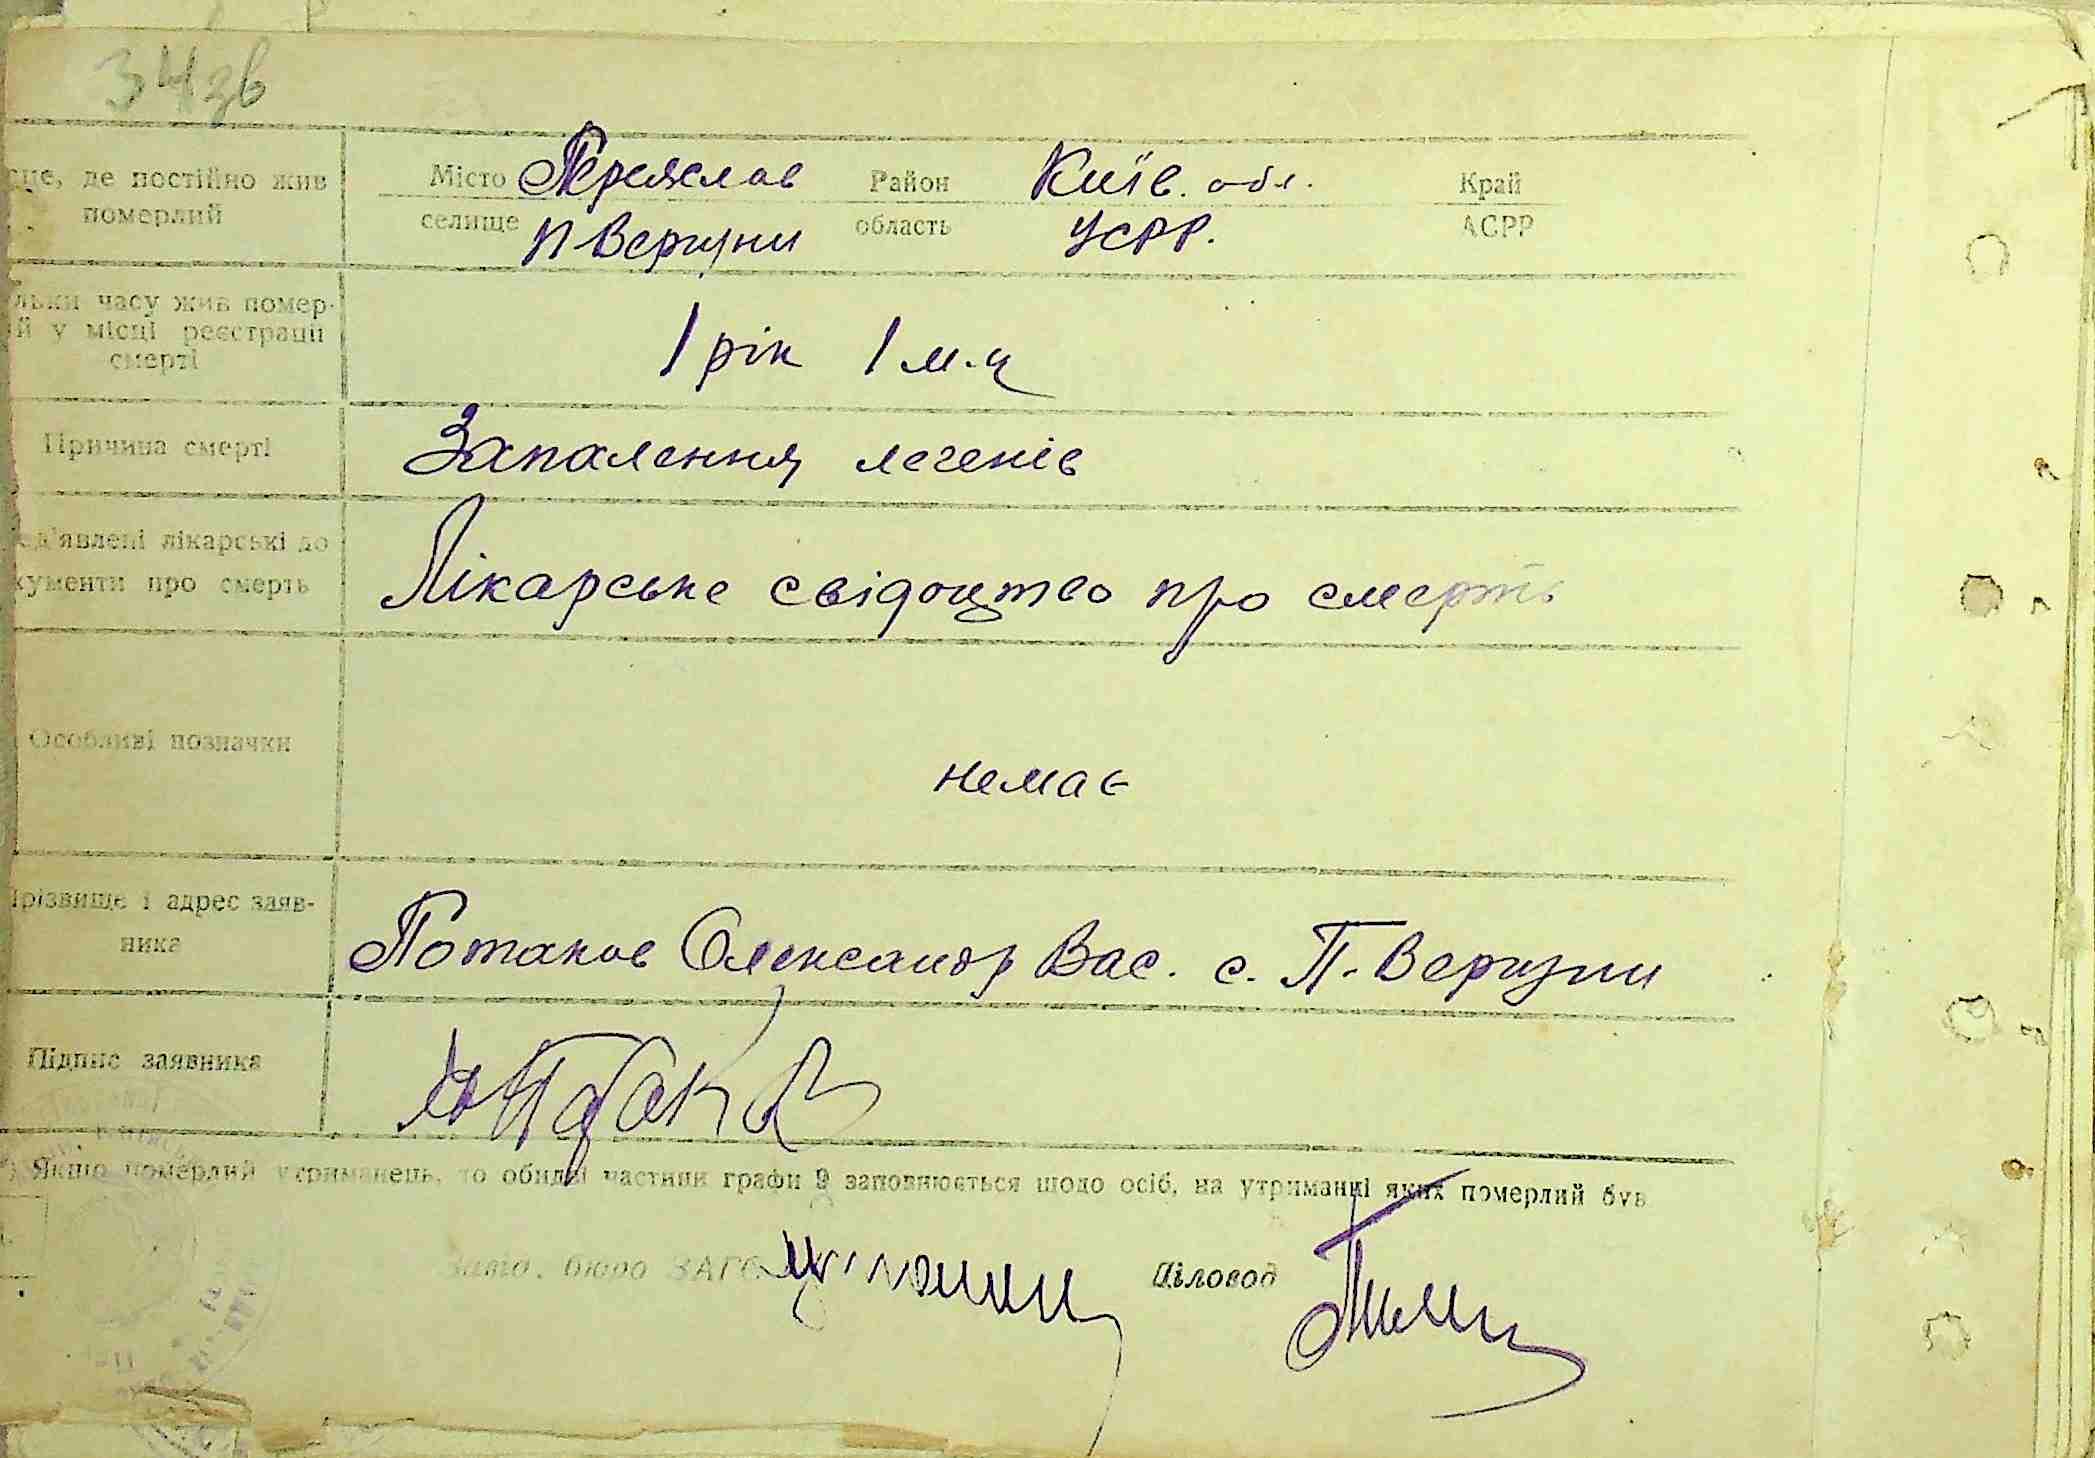 34зв
це, де постійно жив
померлий
Місто Переяслав Район Київ. обл. Край
селище П Вергуни область УСРР. АСРР
льки часу жив помер-
й у місці реєстрації
смерті
1 рік 1 м.ц
Причина смерті
Запалення легенів
д'явлені лікарські до
кументи про смерть
Лікарське свідоцтво про смерть
Особливі позначки
немає
різвище і адрес заяв-
ника
Потапов Олександр Вас. с. П. Вергуни
Підпис заявника
Якщо померлий утриманець, то обидві частини графи 9 заповнюється щодо осіб, на утриманні яких померлий був
Завід. бюро ЗАГС Діловод